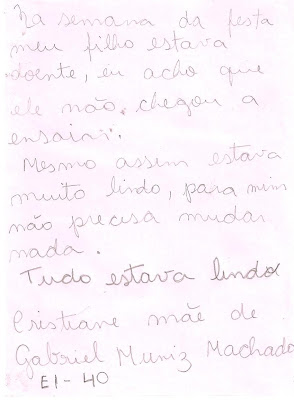 Na semana da festa
meu filho estava
doente, eu acho que
ele não chegou a
ensaiar.
Mesmo assim estava
muito lindo, para mim
não precisa mudar
nada.
Tudo estava lindo
Cristiane mãe de
Gabriel Muniz Machado
EI-40